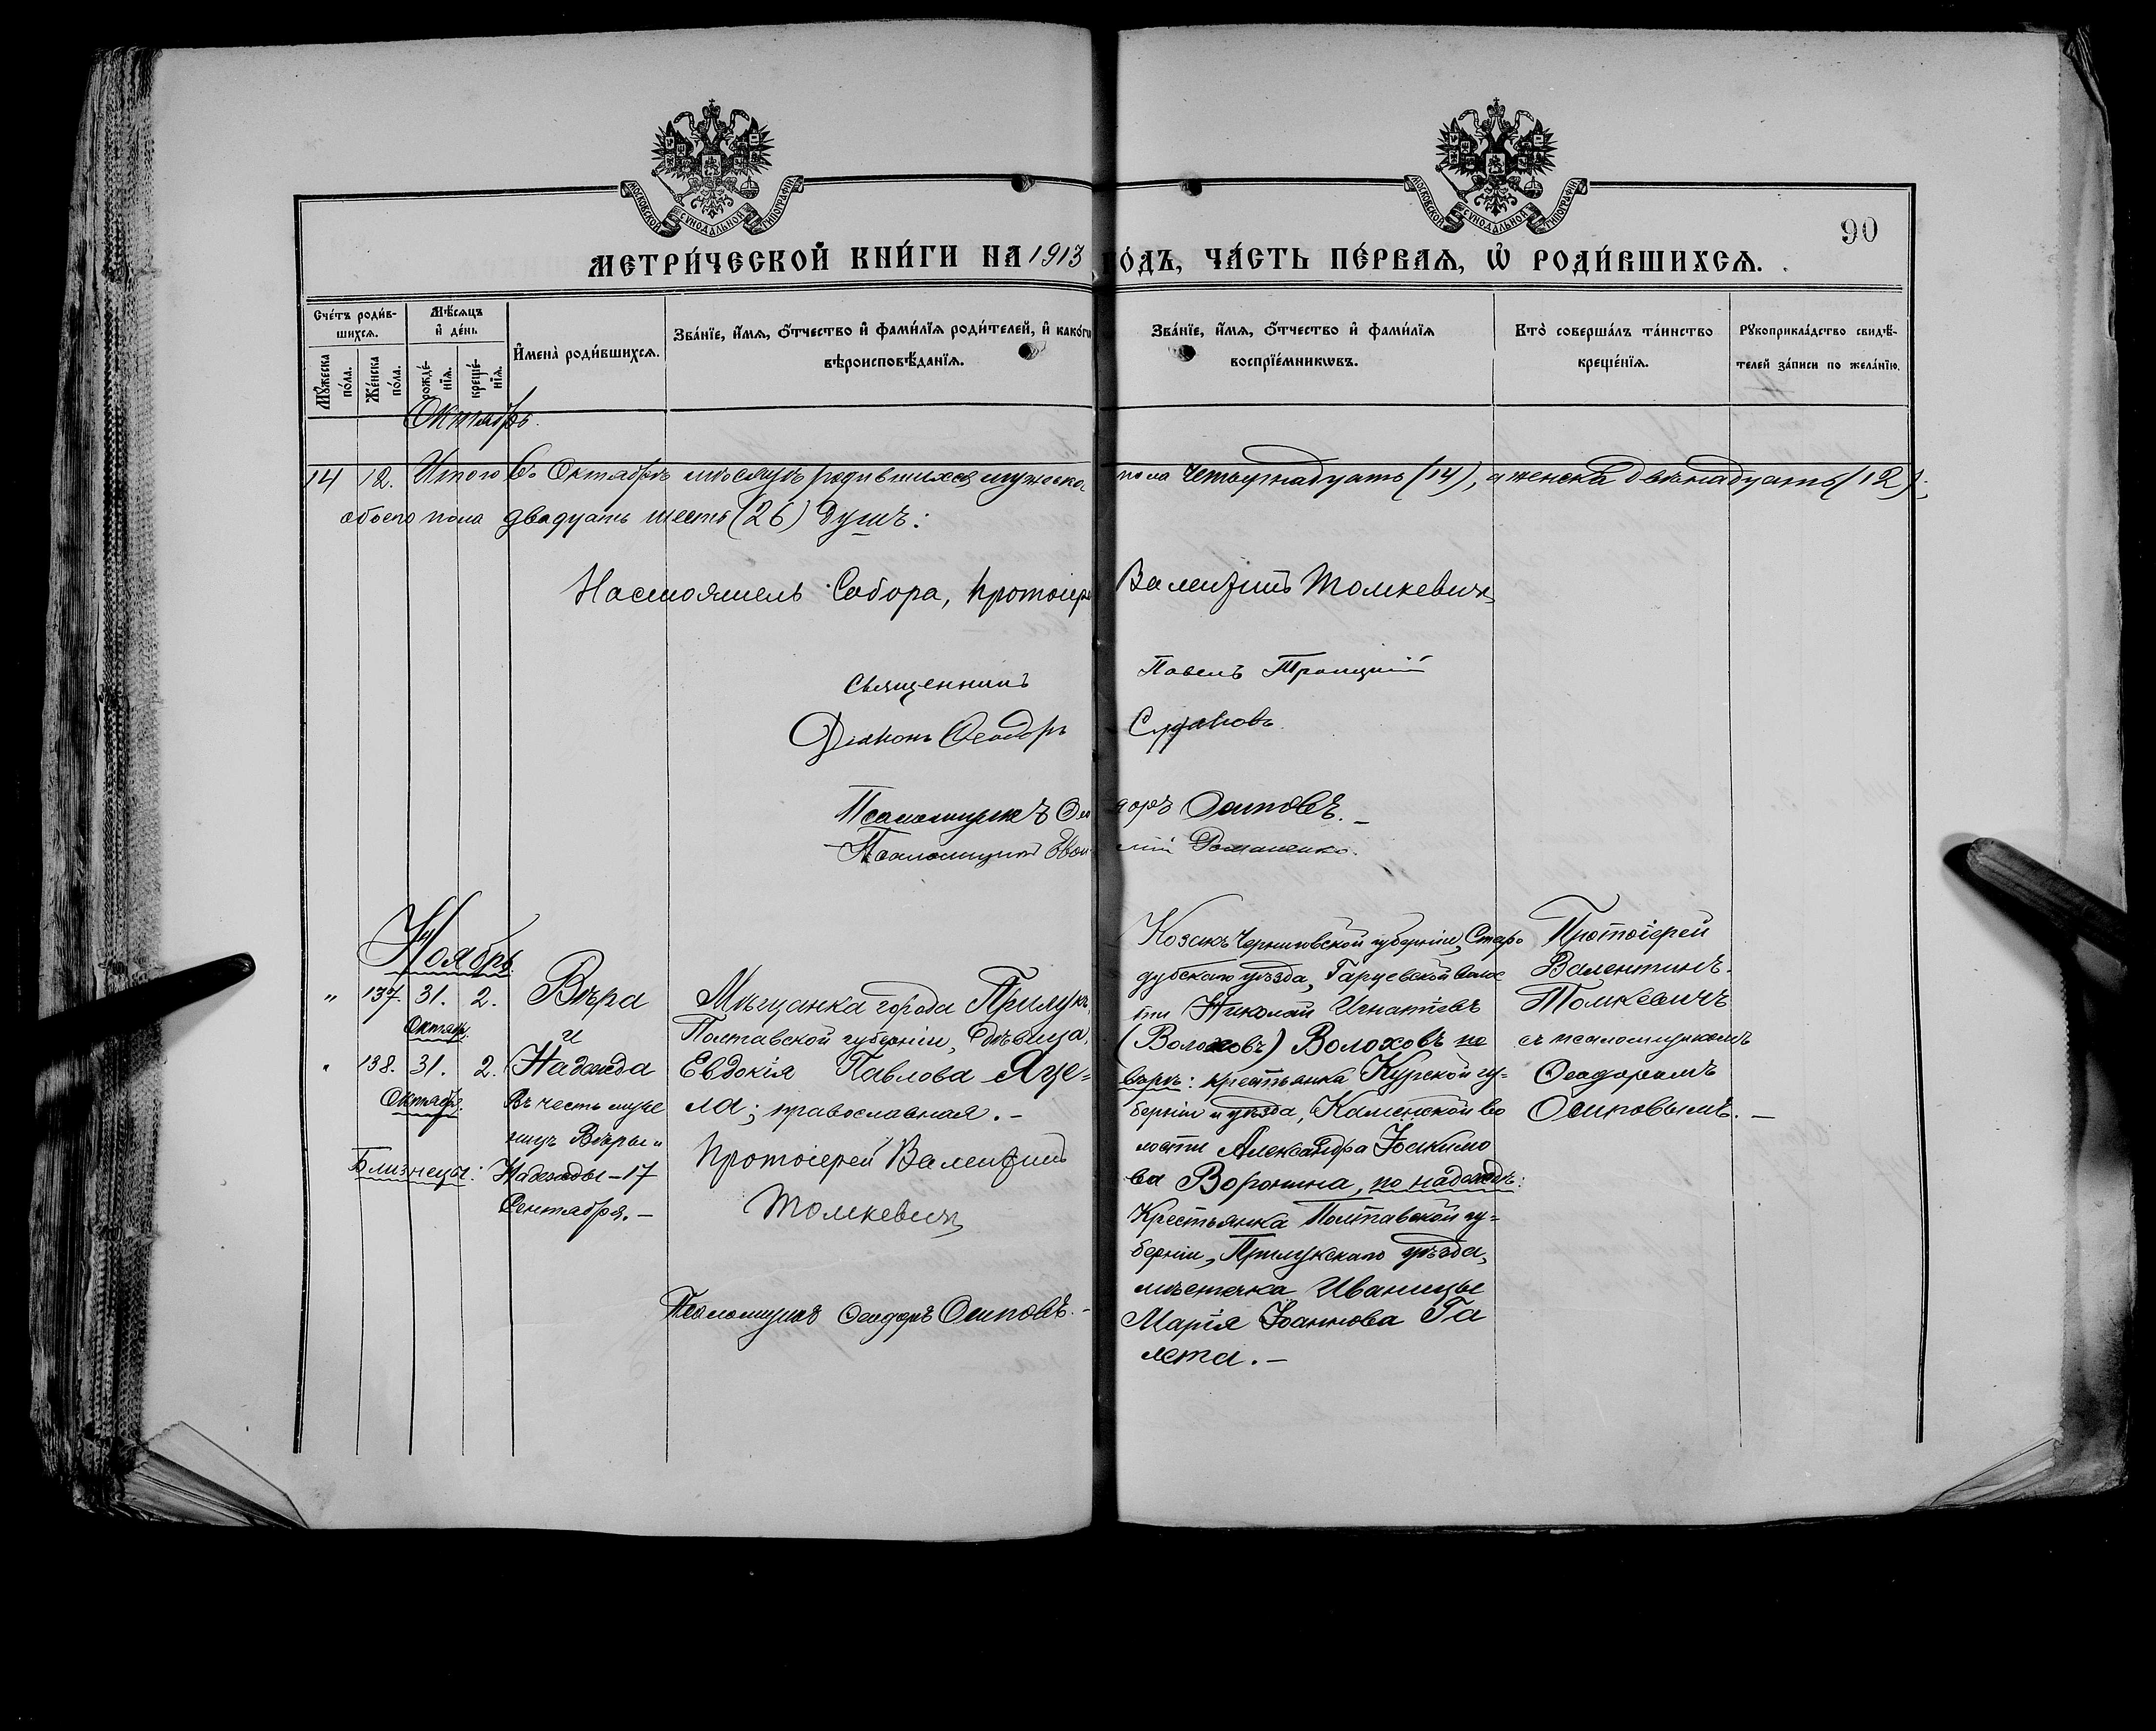 МОСКОВСКОЙ СУНОДАЛЬНОЙ ТИПОГРАФІИ
МОСКОВСКОЙ СУНОДАЛЬНОЙ ТИПОГРАФІИ
90
МЕТРИ́ЧЕСКОЙ КНИ́ГИ НА 1913 ГО́ДЪ, ЧА́СТЬ ПЕ́РВАѦ, Ѡ҆ РОДИ́ВШИХСѦ.
Сче́тъ роди́в-
шихсѧ.
Мꙋ́жеска
по́ла.
Же́нска
по́ла.
Мѣ́сѧцъ
и҆ де́нь
рожде́-
нїѧ.
креще́-
нїѧ.
И҆мена̀ роди́вшихсѧ.
Зва́нїе, и҆́мѧ, ѻ҆́тчество и҆ фами́лїѧ роди́телей, и҆ како́гѡ
вѣроисповѣ́данїѧ.
Зва́нїе, и҆́мѧ, ѻ҆́тчество и҆ фами́лїѧ
воспрїе́мникѡвъ.
Кто̀ соверша́лъ та́инство
креще́нїѧ.
Рꙋкоприкла́дство свидѣ́-
телей за́писи по жела́нїю.
Октябрь.
14 12. Итого въ Октябрѣ мѣсяцѣ родившихся мужеска пола четырнадцать (14), а женска двѣнадцать (12);
обоего пола двадцать шесть (26) душъ:
Настоятель Собора, Протоіерей Валентинъ Томкевичъ
Священникъ Павелъ Троицкій
Діаконъ Ѳеодоръ
Псаломщикъ Ѳеодоръ Осиповъ.
Псаломщикъ Романенко.
Ноябрь.
" 137. 31. 2. Вѣра
Октябр.
и
" 138. 31. 2. Надежда
Октябр.
Въ честь муче
ницъ Вѣры и
Близнецы: Надежды – 17
Сентября. –
Мѣщанка города Прилукъ,
Полтавской губерніи, дѣвица,
Евдокія Павлова Яце=
ла; православная. –
Протоіерей Валентинъ
Томкевичъ
Псаломщикъ Ѳеодоръ Осиповъ. –
Козакъ Черниговской губерніи, Старо
дубскаго уѣзда, Гарцевской волос
ти Николай Игнатіевъ
(Волоховъ) Волоховъ по
вѣрѣ: крестьянка Курской гу-
берніи и уѣзда, Каменской во
лости Александра Іоакимо
ва Воронина, по надеждѣ:
Крестьянка Полтавской гу=
берніи, Прилукскаго уѣзда,
мѣстечка Иваницы
Марія Іоаннова Га
лета. –
Протоіерей
Валентинъ
Томкевичъ
съ псаломщикомъ
Ѳеодоромъ
Осиповымъ. –